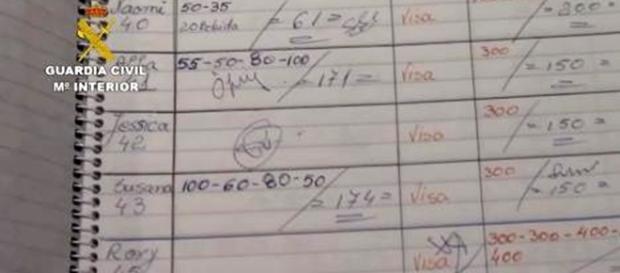 Jasmi 50-35 = 61 = Visa = 200 =
40 20
GUARDIA CIVIL
Mº INTERIOR
55-50-80-100 = 171 = Visa 300 = 150 =
Jessica Visa 300 = 150 =
42
Susana 100-60-80-50 = 174 = Visa 300 = 150 =
43
Rory Visa 300-300-400-
400